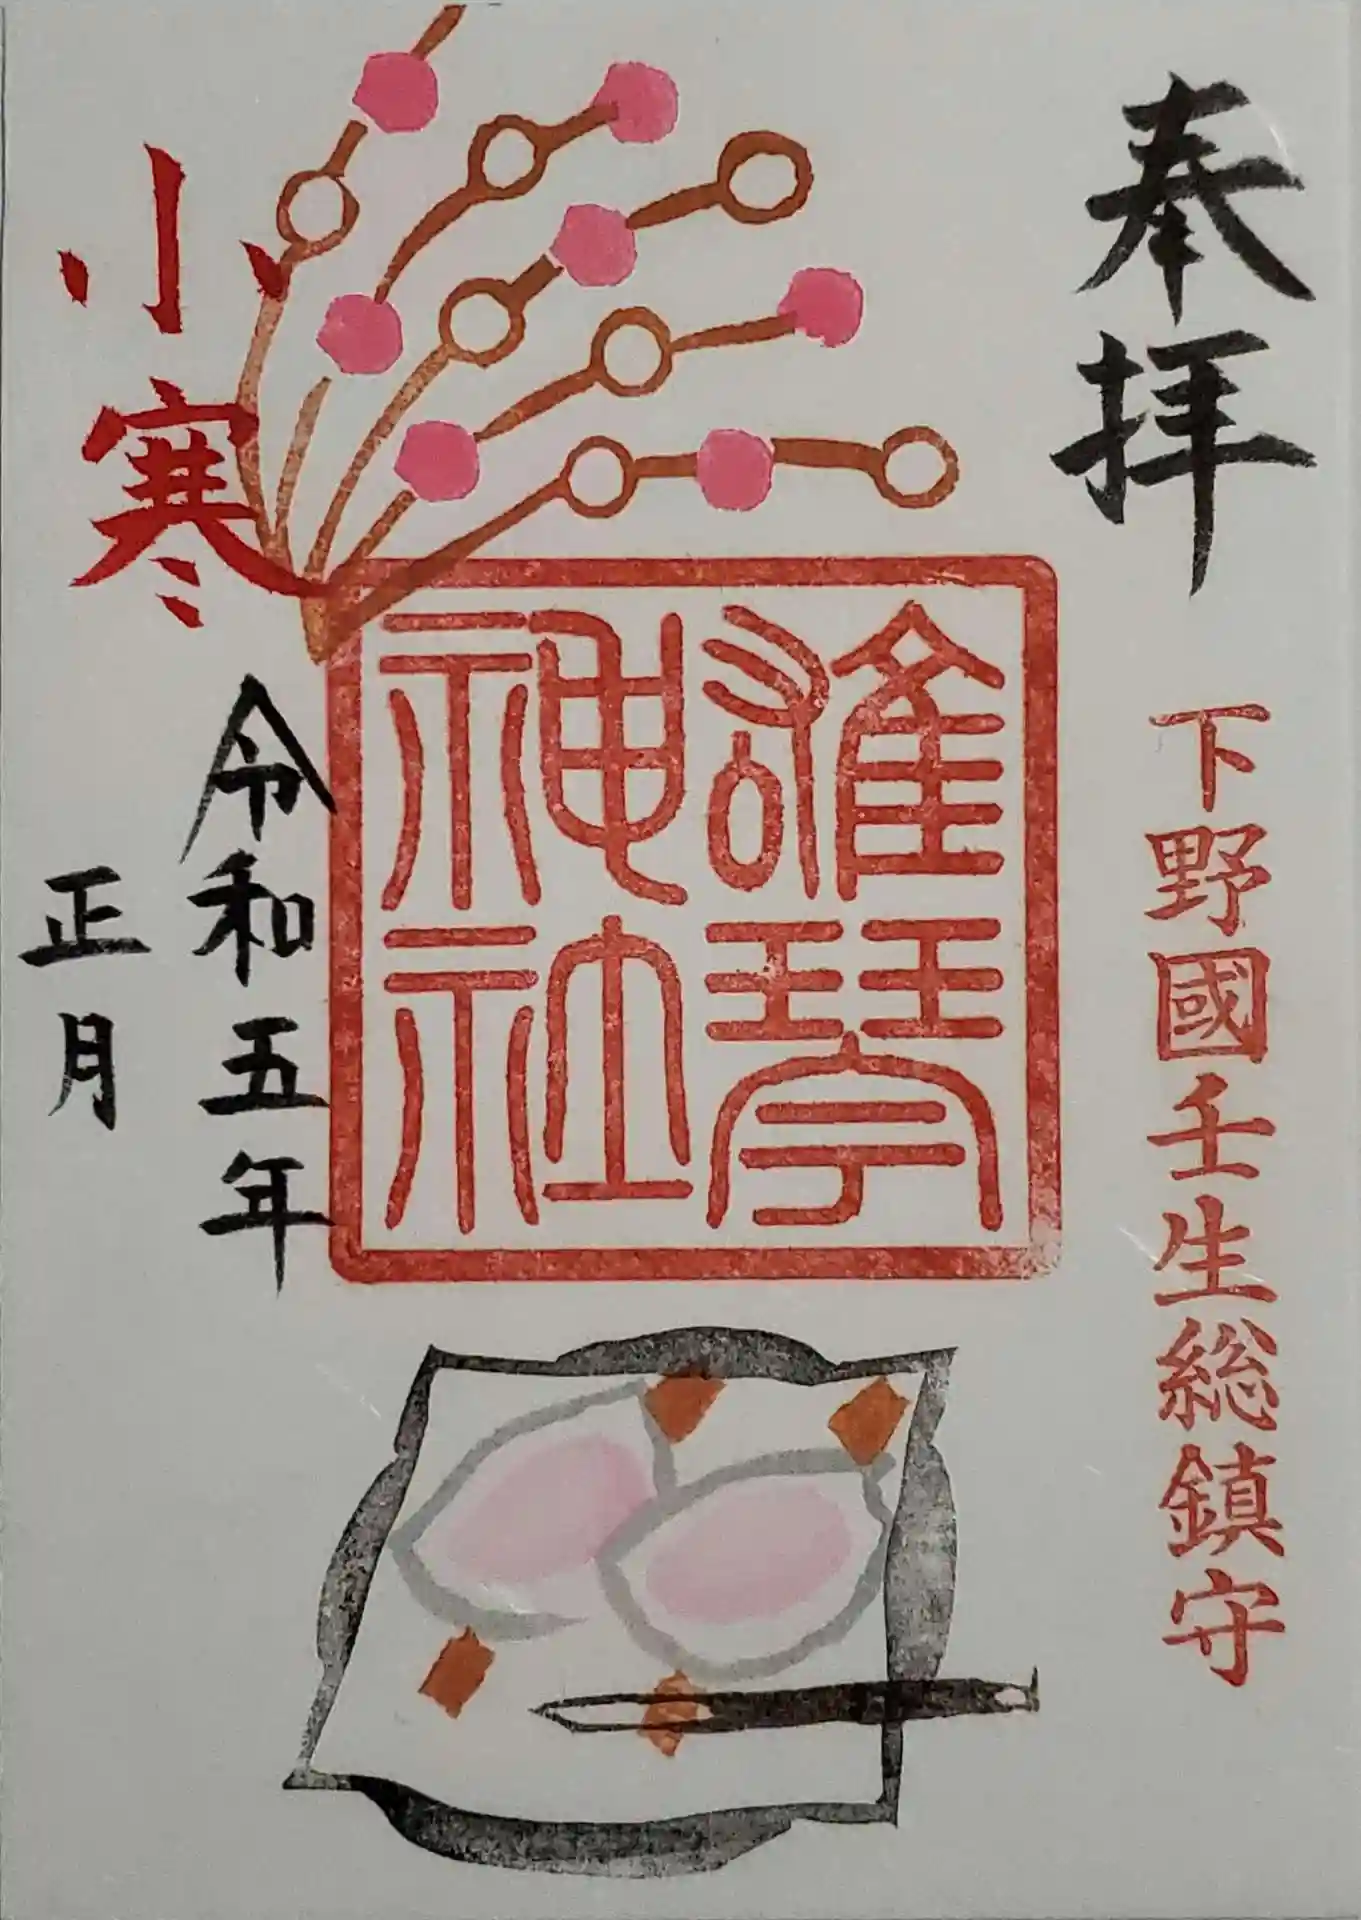 奉拝
下野國壬生総鎮守
雄琴
神社
小寒
令和五年
正月